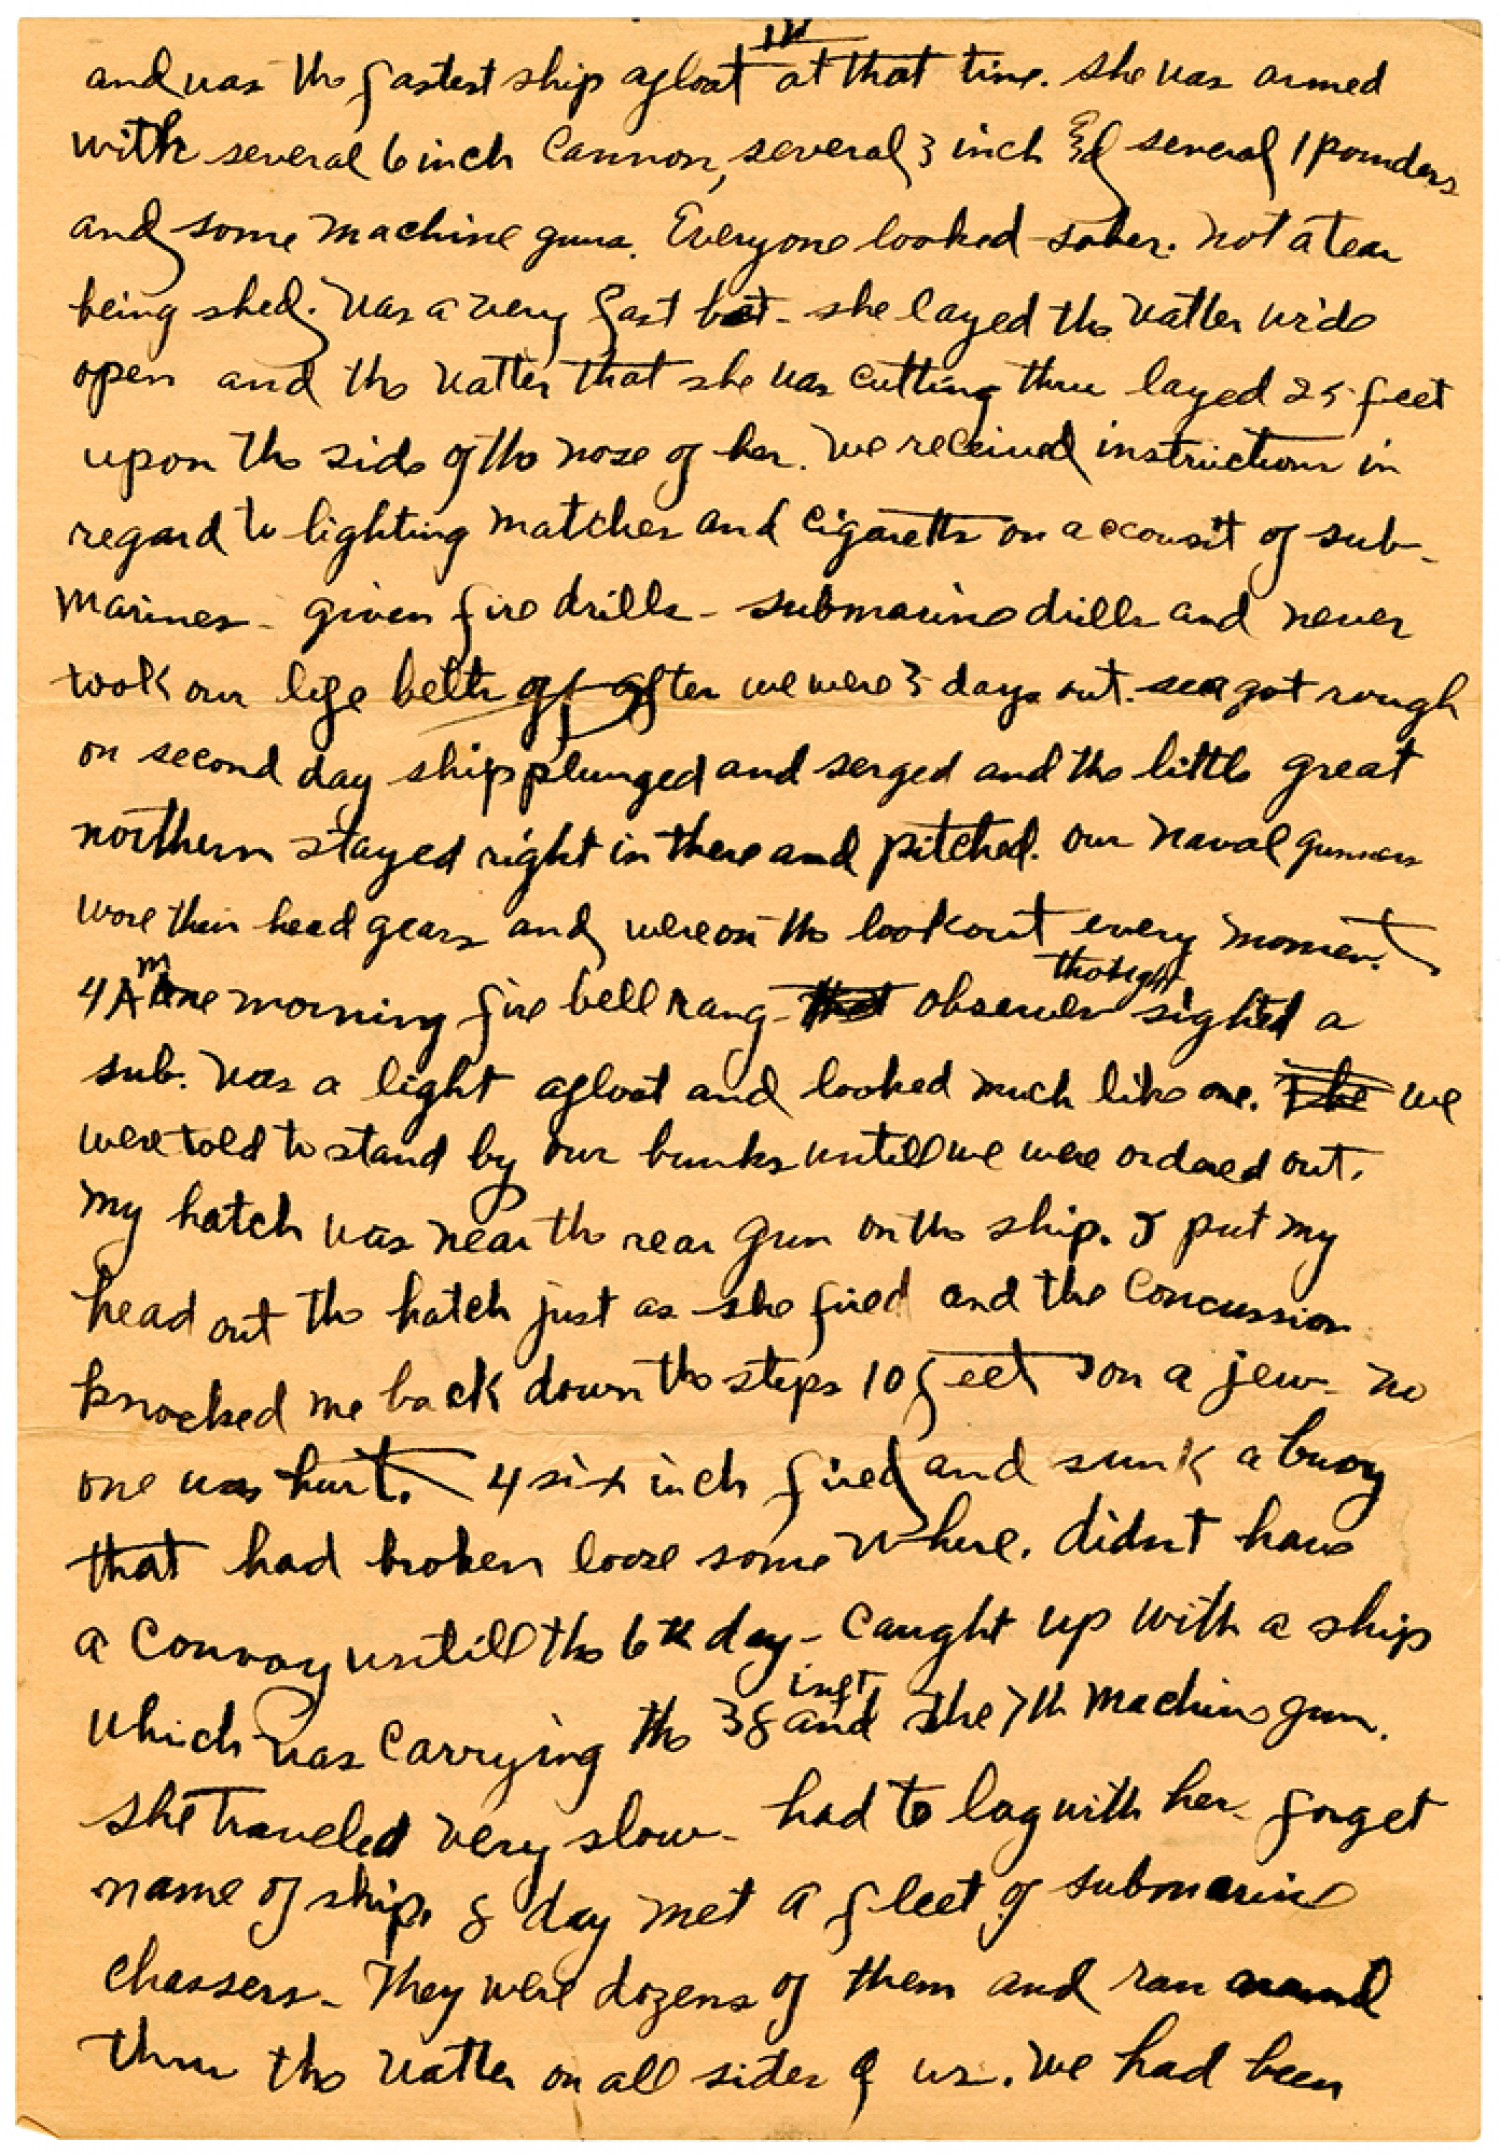 and was the fastest ship afloat at that time. She was armed
with several 6 inch Cannon, several 3 inch & several 1 pounders
and some machine guns. Everyone looked sober. Not a tear
being shed. Was a very fast boat - she layed the watter wide
open and the watter that she was cutting thru layed 25 feet
upon the side of the nose of her. We received instructions in
regard to lighting matches and cigaretts on account of sub-
marines - given fire drills - submarine drills and never
took our life belts off after we were 3 days out. sea got rough
on second day ship plunged and serged and the little great
northern stayed right in there and pitched. our Naval gunners
wore their head gears and were on the lookout every moment.
4 AM one morning fire bell rang - that observer thought sighted a
sub. Was a light afloat and looked much like one. The we
were told to stand by our bunks untill we were ordered out.
My hatch was near the rear gun on the ship. I put my
head out the hatch just as she fired and the Concussion
knocked me back down the steps 10 feet on a jew - no
one was hurt. 4 six inch fired and sunk a buoy
that had broken loose some where. didnt have
a Convoy untill the 6th day - Caught up with a ship
which was carrying the 38 inft and the 7th Machine gun.
she traveled very slow - had to lag with her - forget
name of ship. 8 day met a fleet of submarine
chassers - They were dozens of them and ran around
thru the watter on all sides of us. We had been